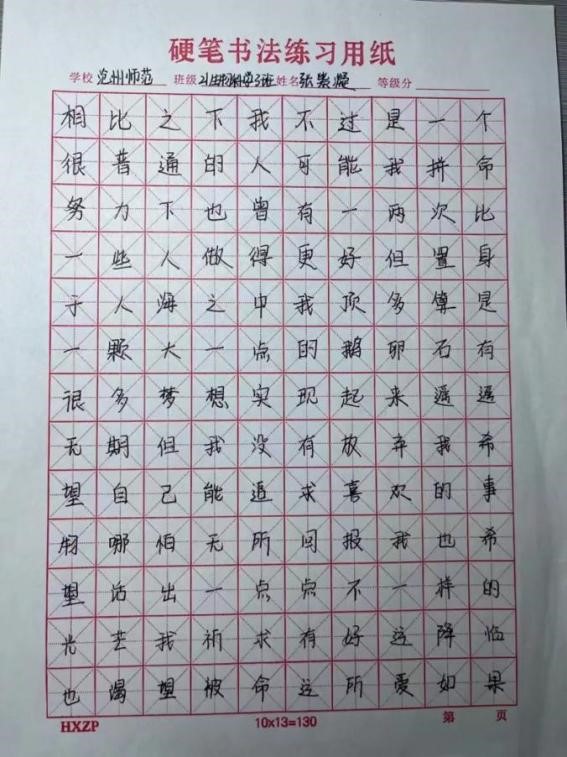 硬笔书法练习用纸
学校 沧州师范 班级 21生物科学3班 姓名 张 等级分
相比之下我不过是一个
很普通的人可能我拼命
努力下也曾有一两次比
一些人做得更好但置身
于人海之中我顶多算是
一颗大一点的鹅卵石有
很多梦想实现起来遥遥
无期但我没有放弃我希
望自己能追求喜欢的事
物哪怕无所回报我也希
望活出一点点不一样的
光芒我祈求有好运降临
也渴望被命运所爱如果
HXZP 10x13=130 第 页